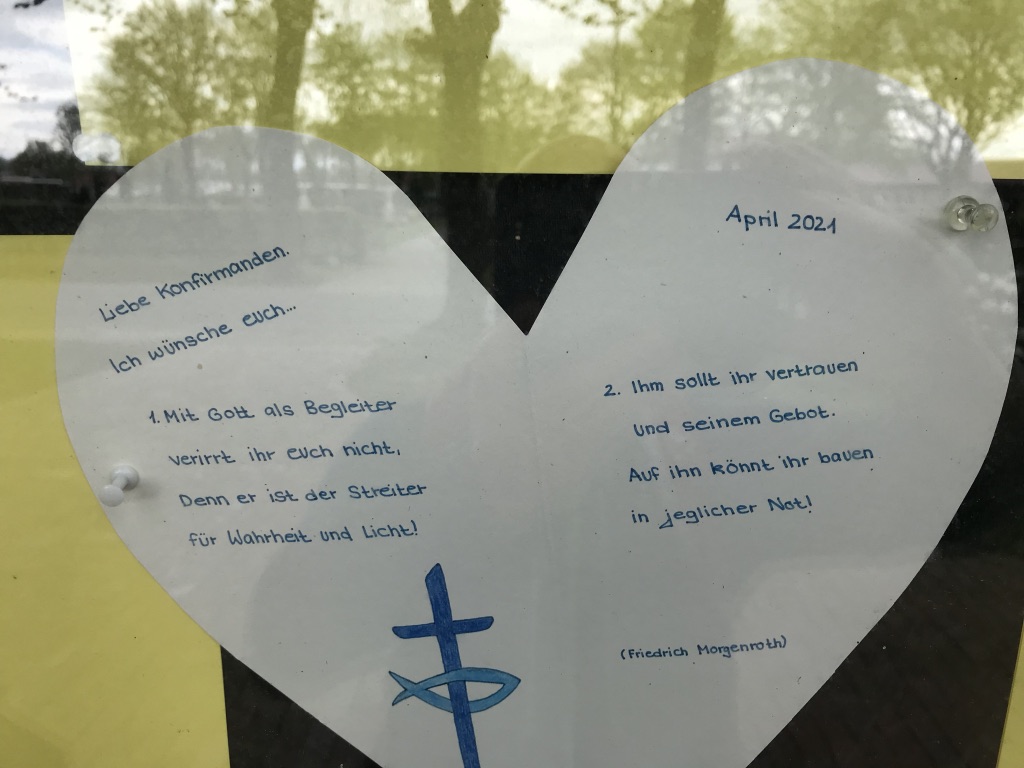 April 2021
Liebe Konfirmanden.
Ich wünsche euch...
1. Mit Gott als Begleiter
verirrt ihr euch nicht,
Denn er ist der Streiter
für Wahrheit und Licht!
2. Ihm sollt ihr vertrauen
und seinem Gebot.
Auf ihn könnt ihr bauen
in jeglicher Not!
(Friedrich Morgenroth)